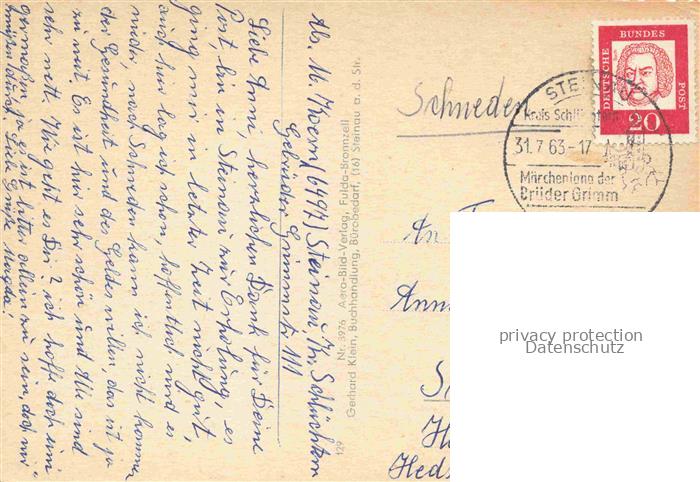 Abs. M. Thoern (6497) Steinau, Kr. Schlüchtern
Gebrüder Grimmstr. 111
Liebe Anni, herzlichen Dank für Deine
Post, bin in Steinau zur Erholung, es
ging mir in letzter Zeit nicht gut,
auch hier lag ich schon, hoffentlich wird es
nach Schweden kann ich nicht kommen
der Gesundheit und des Geldes willen, das ist ja
zu weit. Es ist hier sehr schön und alle sind
sehr nett. Wie geht es Dir? ich hoffe doch eini-
germaßen, ja es ist bitter allein zu sein, doch wir
müssen durch. Liebe Grüße
129
Nr. 3976 Aero-Bild-Verlag, Fulda-Bronnzell
Gerhard Klein, Buchhandlung, Bürobedarf, (16) Steinau a. d. Str.
Schweden
DEUTSCHE BUNDES POST
20
STEINAU
Kreis Schlüchtern
31.7.63-17
Märchenland der
Brüder Grimm
An
Ann
privacy protection
Datenschutz
Heds